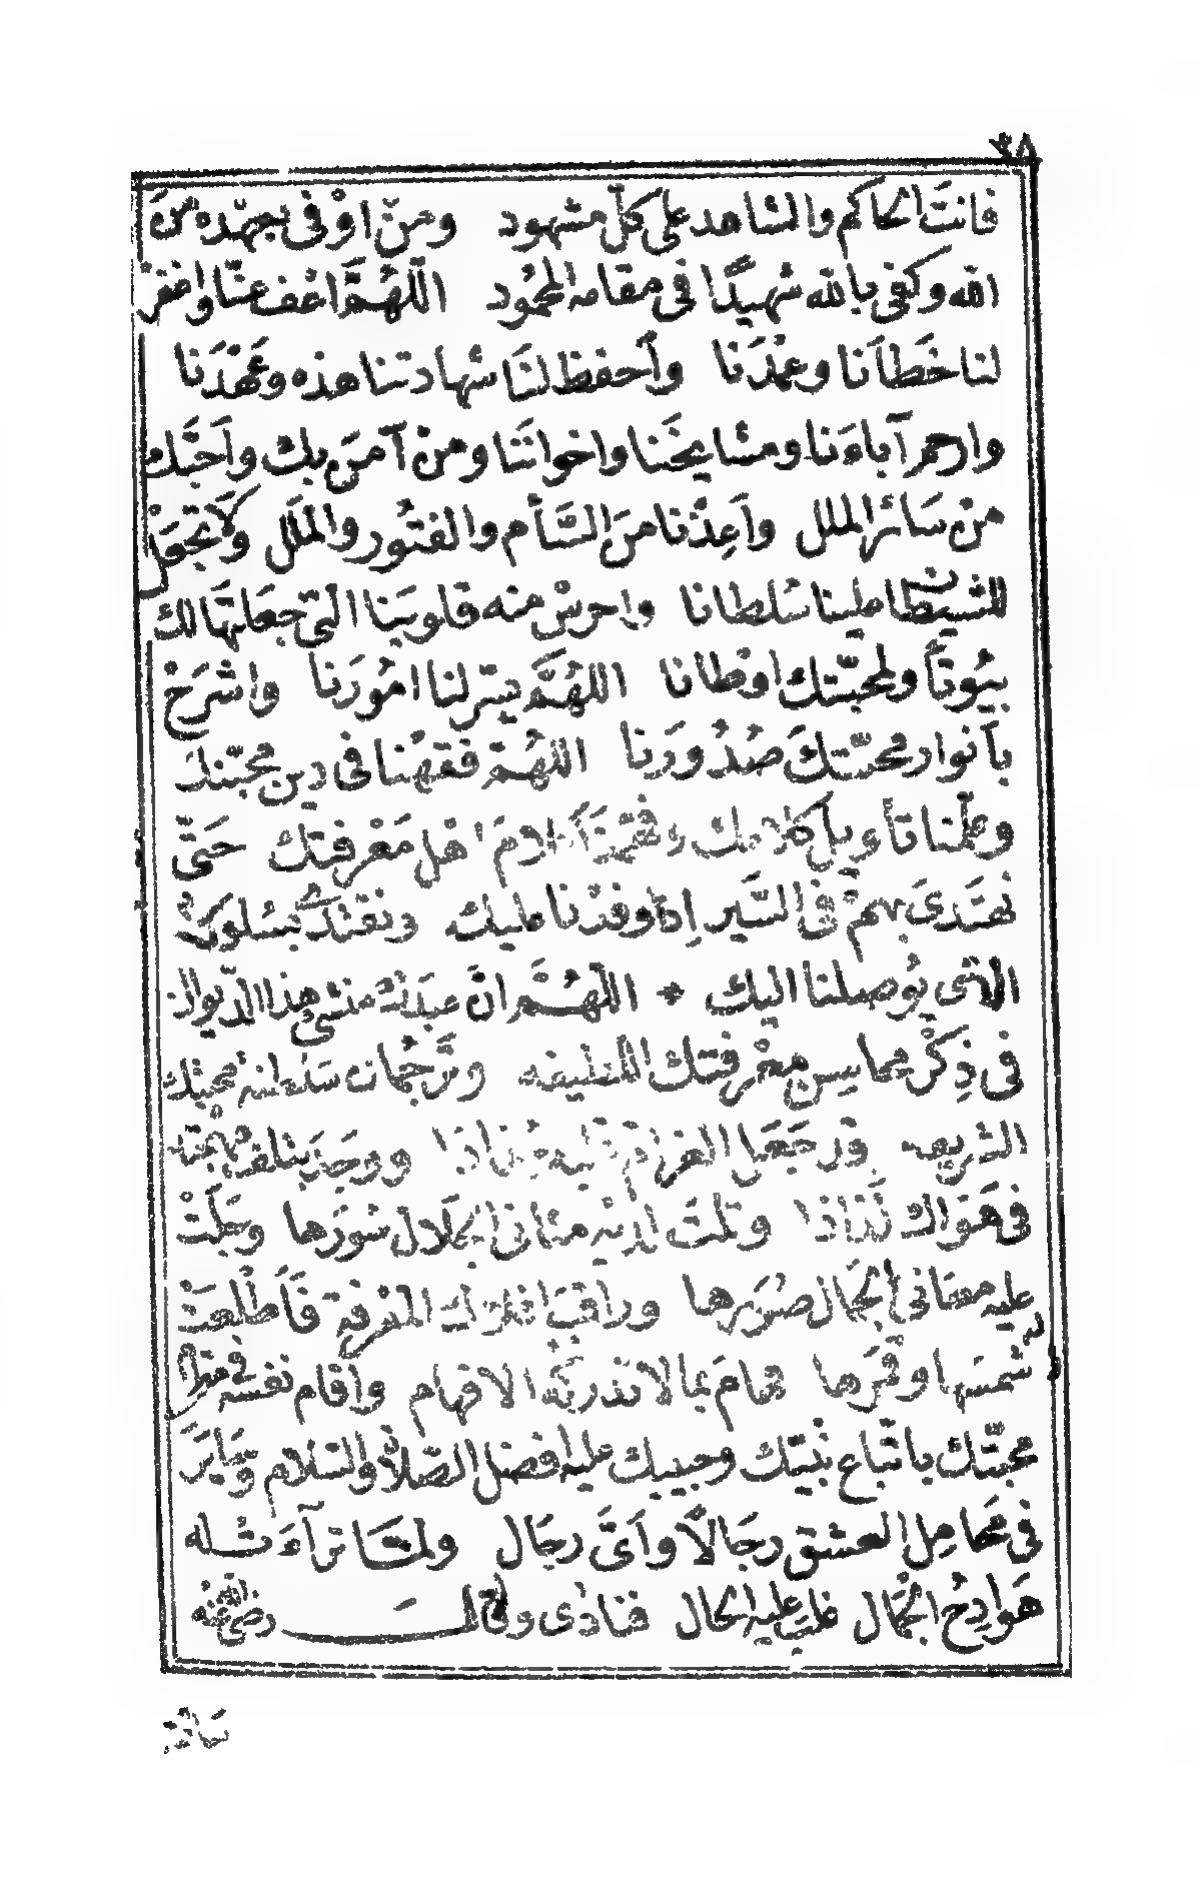 ٣٨
فانتَ الحاكم والشاهد على كلّ مشهود ومنْ اوْفى بعهْده منَ
الله وكفى بالله شهيدًا فى مقامه المحمُود اللّهُمَّ اغفُ عنّا واغفرْ
لنا خَطأنا وعمْدَنا وأحفظ لنَا شهادتنا هذه وعَهْدَنا
وارحم آباءَنا ومشايخَنا واخوانَنا ومنْ آمنَ بك وأحبَّك
منْ سَائر الملل وأعِذْنا منَ السَّأم والفتُور والملَل ولاَ تجْعَل
للشيطان علينا سُلطانا واحرسْ منه قلوبَنا الّتى جعَلتهَا لك
بيُوتاً ولمحبّتك اوْطانا اللهُمَّ يسّر لنا امُورَنا واشرَحْ
بأنوار محبّتكَ صُدُورَنا اللهُمّ فقهْنا فى دين محبّتك
وعلّمنا تأويل كلامك وفهّمْنَا كلامَ اهْل مَعْرفتك حَتّى
نهتَدىَ بهمْ فى السَّير اذا وفدْنا عليك ونقتْدىَ بسُلوكهُ
الّذى يُوصلنا اليك * اللّهُمَّ انَّ عبدَكَ منشئ هذا الدّيوان
فى ذِكْر محاسن معْرفتك اللطيفه وترْجُمان سَلطنة محبّتك
الشريفه قد جَعَل الغرام ووجَد بتلف مهْجته
فى هَوَاك لَذاذا وتلتْ لديْه مثانى الجَلال سُورَها وجَلَتْ
عليه معَانى الجَمال صُوَرها وراقبَ المعْرفة فأطْلعَتْ
له شمْسَها وقمَرها هامَ بما لا تدْركه الافهام وأقام نفسَه فى مقام
محبّتك باتّباع نبيّك وحبيبك عليه افضل الصّلاة والسّلام وسَايَرَ
فى محَامِل العشق رجَالاً وأىَّ رجَال ولمّا ترآءَت له
هَوادجُ الجْمَال غلبَ عليه الحال فنادَى وقال رضى الله عنه